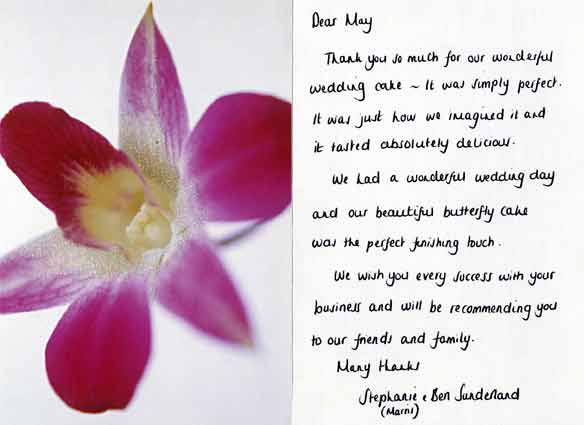 Dear May
Thank you so much for our wonderful
wedding cake ~ It was simply perfect.
It was just how we imagined it and
it tasted absolutely delicious.
We had a wonderful wedding day
and our beautiful butterfly cake
was the perfect finishing touch.
We wish you every success with your
business and will be recommending you
to our friends and family.
Many thanks
Stephanie & Ben Sunderland
(Marris)